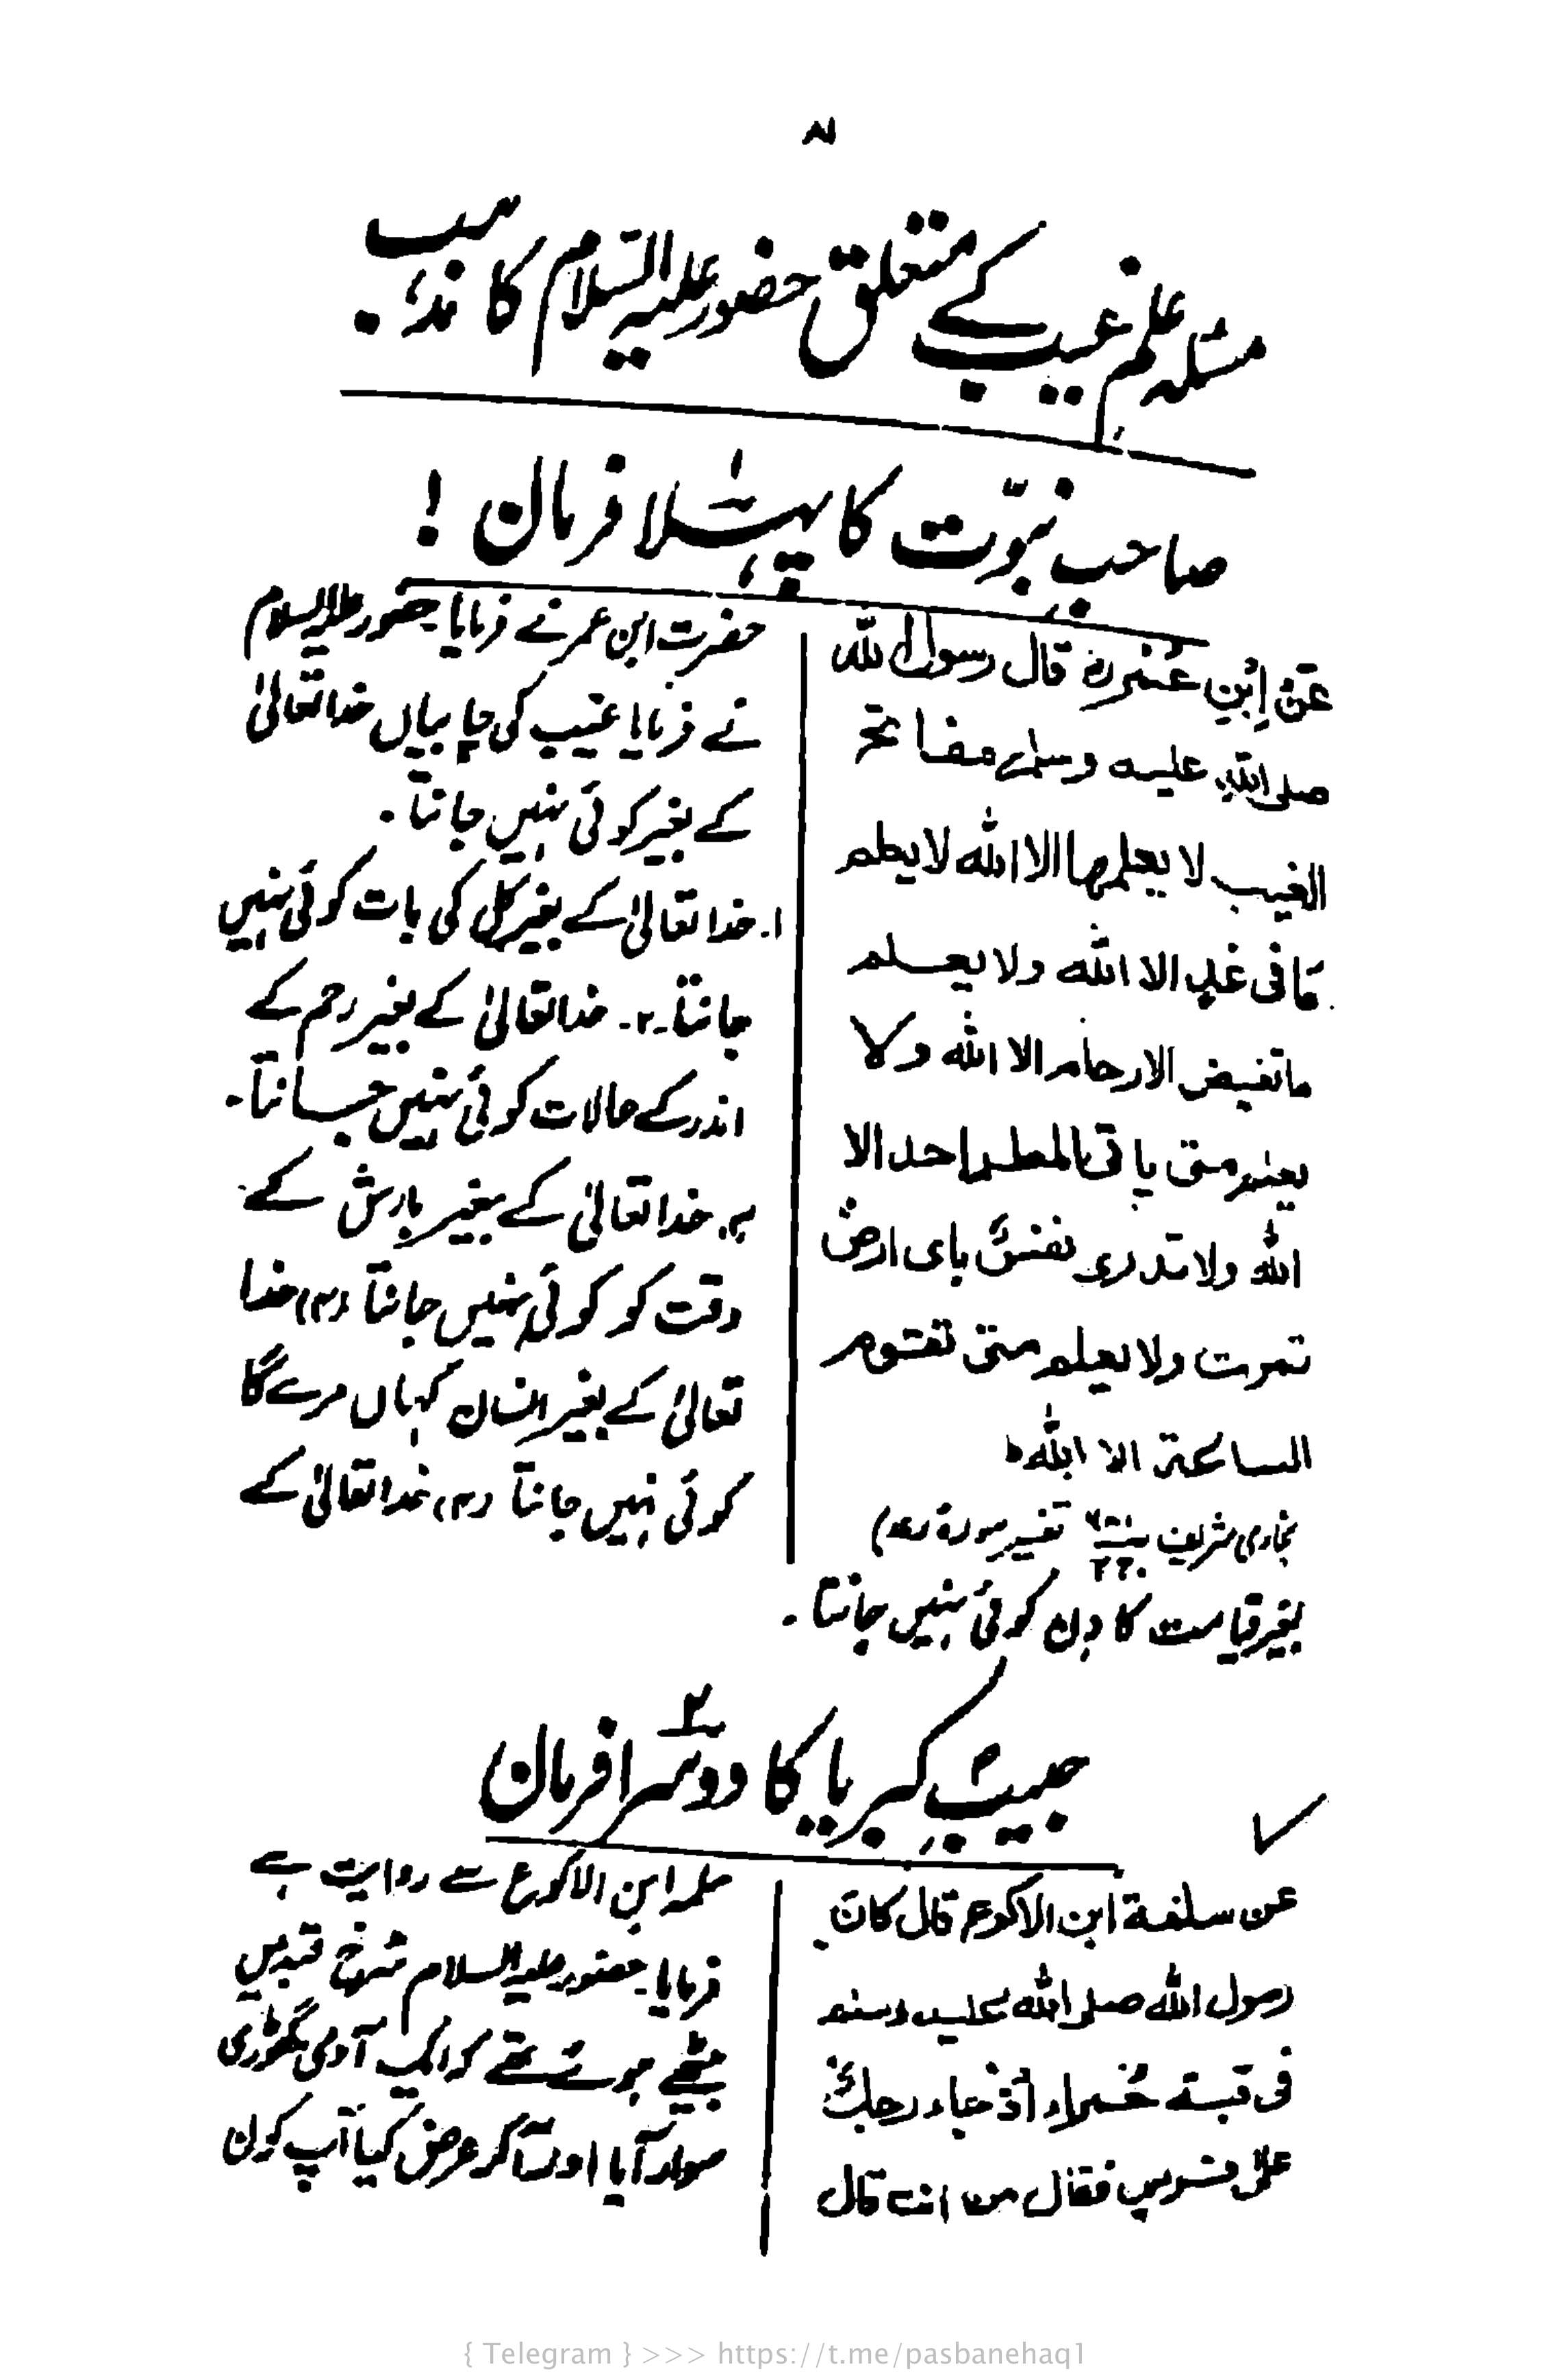 ۸
مسئلہ علم غیب کے متعلق حضور علیہ السلام کا مذہب
صاحب نبوّت کا پہلا فرمان !
عَنْ اِبْنِ عُمَرؓ قال رسول اللہ
صلی اللہ علیہ وسلم مفاتح
الغیب لا یعلمها الا اللہ لا یعلم
مَا فی غدٍ الا اللہ ولا یعلم
ما تغیض الارحام الا اللہ ولا
یعلم متی یاتی المطر احد الا
اللہ ولا تدری نفسٌ بای ارضٍ
تموت ولا یعلم متی تقوم
الساعۃ الا اللہ ط
بخاری شریف تفسیر سورۃ رعد)
حضرت ابن عمر نے فرمایا۔ حضور علیہ السلام
نے فرمایا غیب کی چابیاں خدا تعالیٰ
کے بغیر کوئی نہیں جانتا۔
۱۔ خدا تعالیٰ کے بغیر کل کی بات کوئی نہیں
جانتا۔ ۲۔ خدا تعالیٰ کے بغیر رحم کے
اندر کے حالات کوئی نہیں جانتا۔
۳۔ خدا تعالیٰ کے بغیر بارش کے
وقت کو کوئی نہیں جانتا (۴) خدا
تعالیٰ کے بغیر انسان کہاں مرے گا
کوئی نہیں جانتا (۴) خدا تعالیٰ کے
بغیر قیامت کا دن کوئی نہیں جانتا۔
حبیبِ کبریا کا دوسرا فرمان ۲
عن سلمۃ ابن الاکوع قال کانَ
رسول اللہ صلی اللہ علیہ وسلم
فی قبۃ حمراء اذ جاء رجلٌ
علیٰ فرس فقال من انت قال
سلمہ ابن الاکوع سے روایت ہے
فرمایا۔ حضور علیہ السلام سُرخ قبہ میں
بیٹھے ہوئے تھے کہ ایک آدمی گھوڑی
سوار آیا اور آ کر عرض کیا آپ کون
{ Telegram } >>> https://t.me/pasbanehaq1